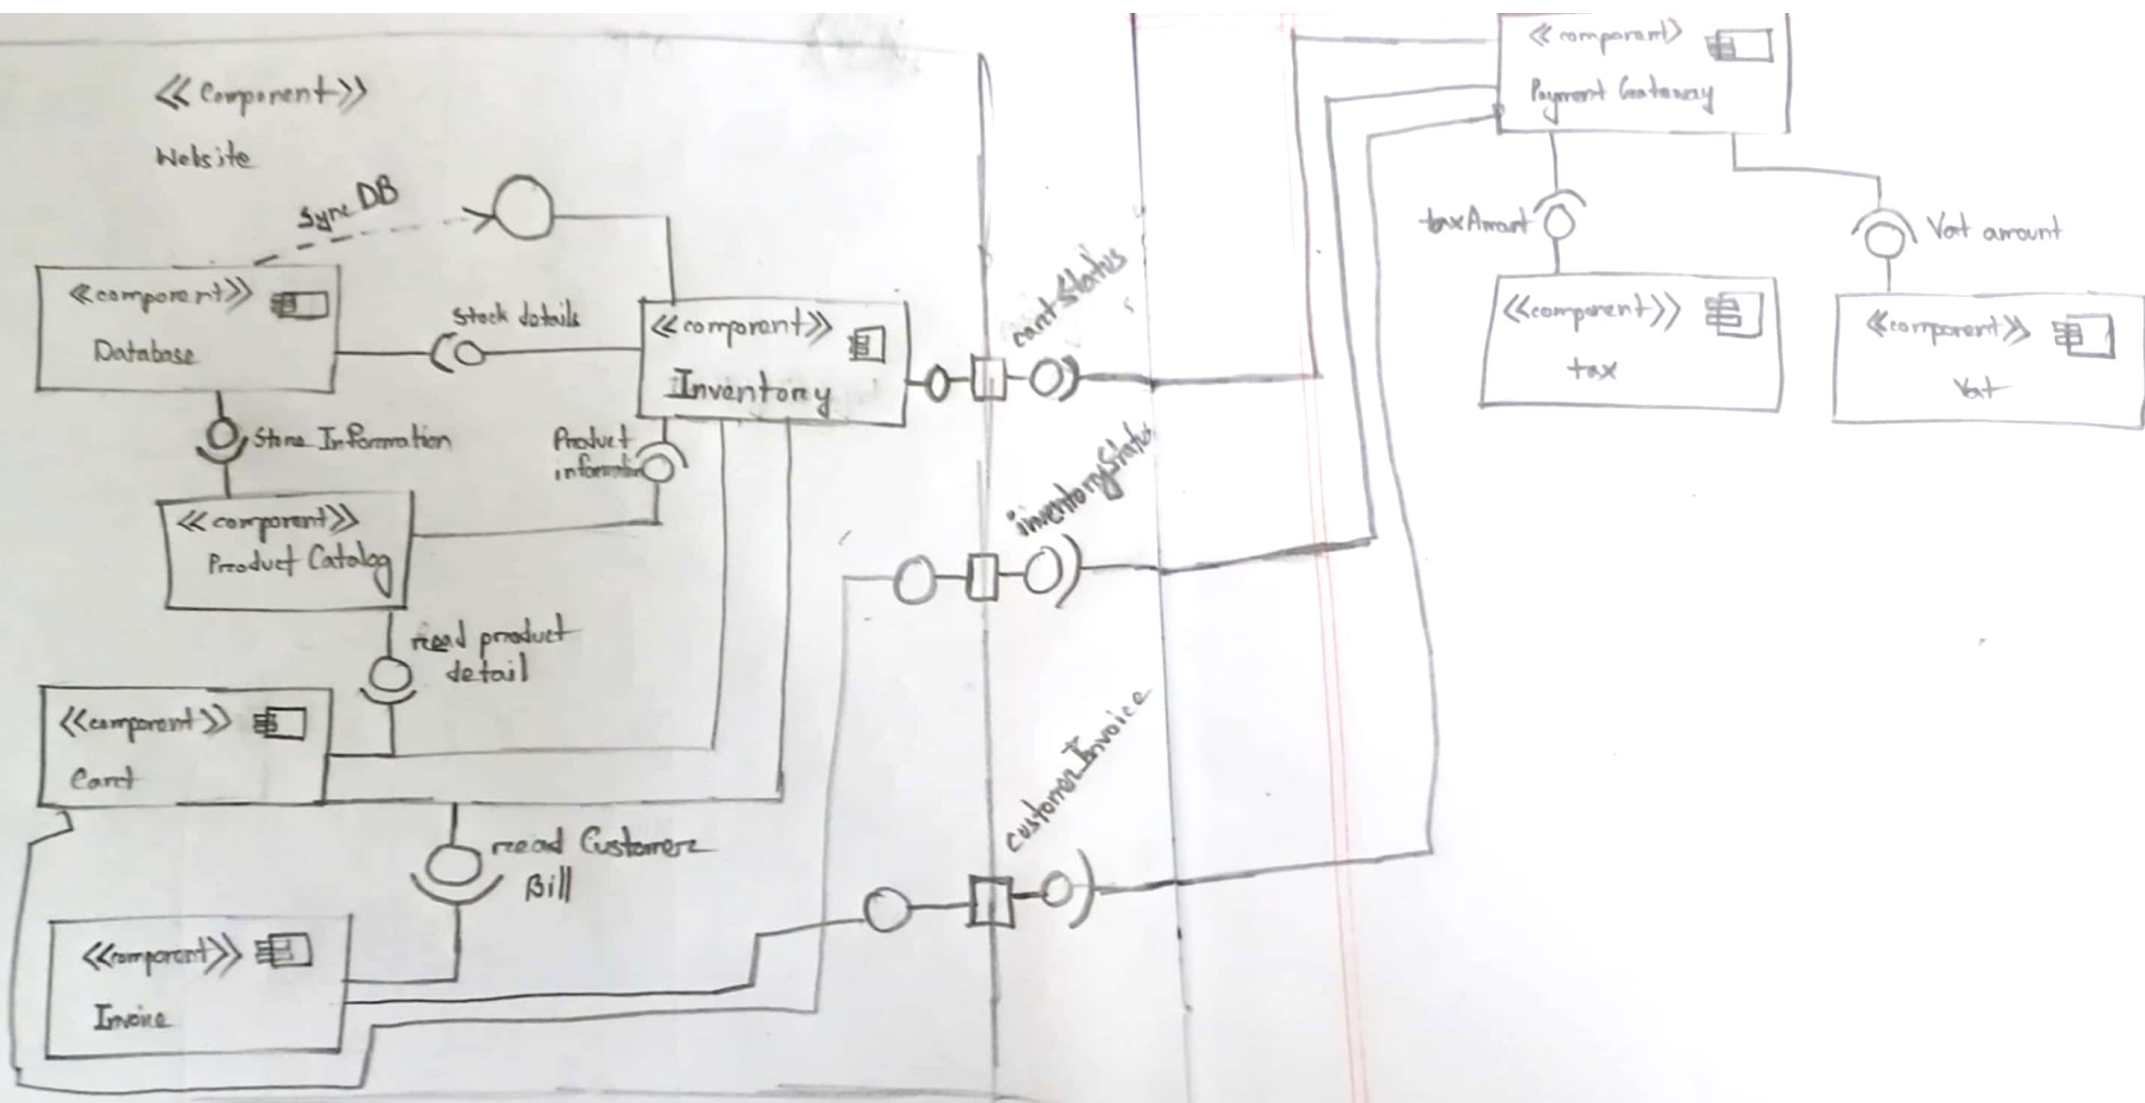 << Component >>
Website
Sync DB
<< component >>
Database
Stock details
<< component >>
Inventory
Store Information
Product
information
<< component >>
Product Catalog
read product
detail
<< component >>
Cart
read Customer
Bill
<< component >>
Invoice
cartStatus
inventoryStatus
customerInvoice
<< component >>
Payment Gateway
taxAmount
Vat amount
<< component >>
tax
<< component >>
Vat